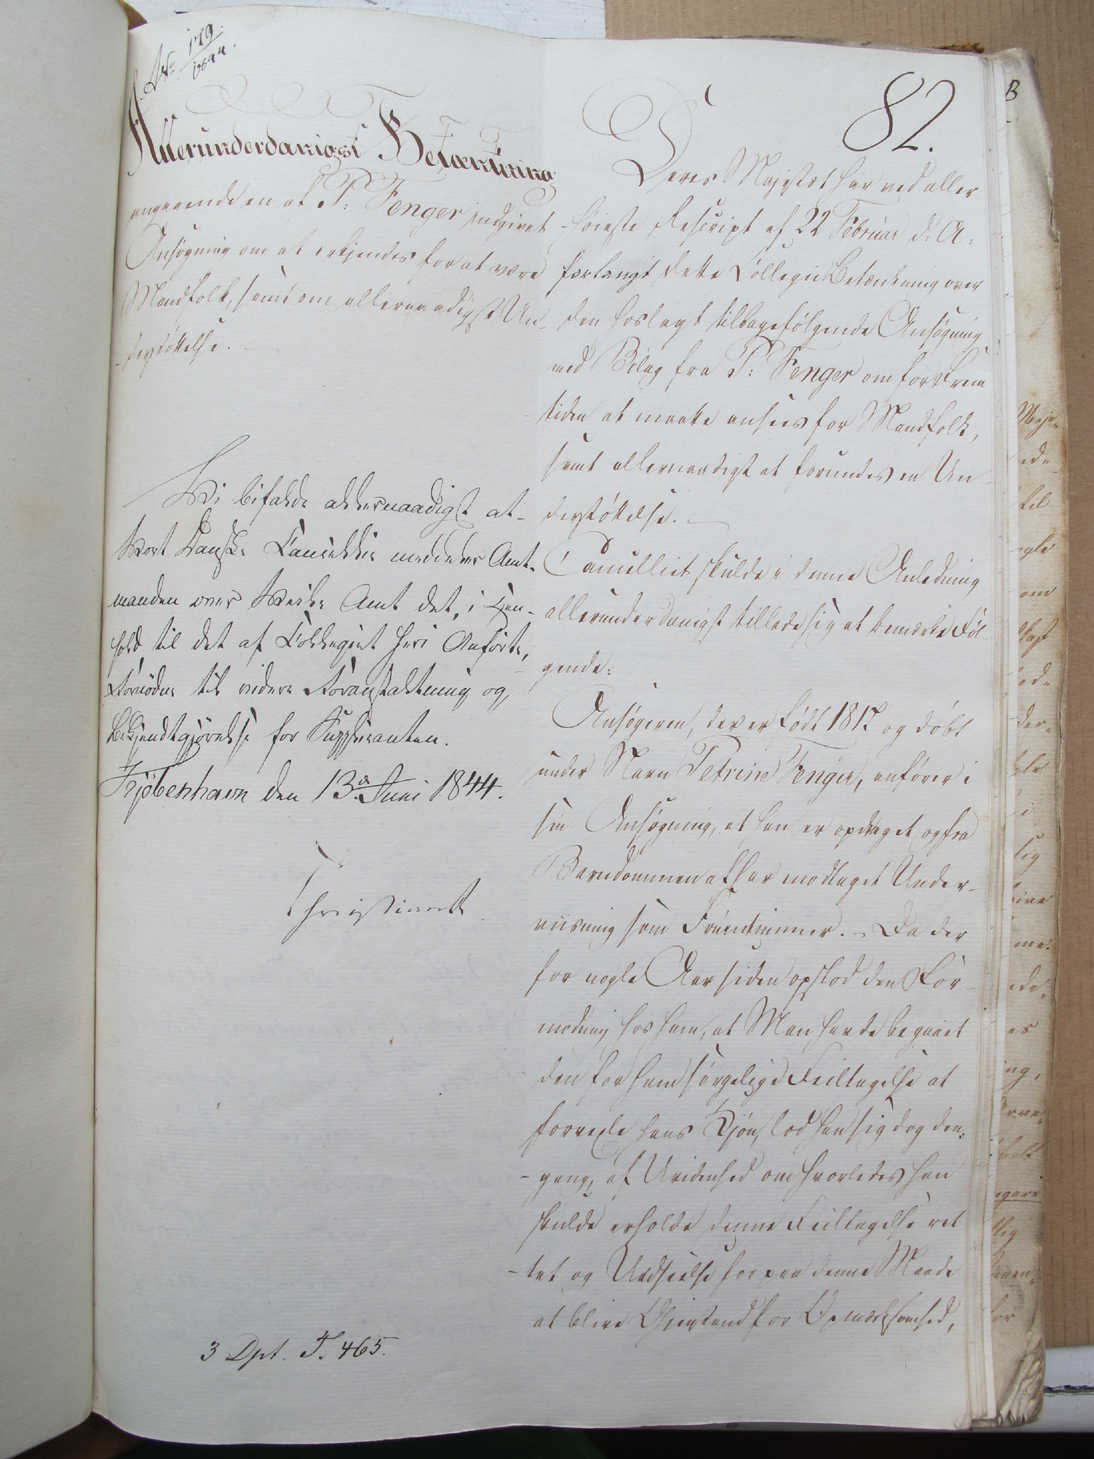 No 179/1844.
Allerunderdanigst Betænkning
angaaende en af P: Fenger indgivet
Ansøgning om at erkjendes for at være
Mandfolk, samt om allernaadigst Un-
derstøttelse.
Vi bifalde allernaadigst at
Vort Danske Cancellie meddeler Amt-
manden over Veile Amt det, i Hen-
hold til det af Collegiet heri Anførte,
Fornødne til videre Foranstaltning og
Bekjendtgjørelse for Supplicanten.
Kjøbenhavn den 13de Juni 1844.
Christian R
3 Dpt. T. 465.
82.
Deres Majestæt har ved aller
høieste Rescript af 22 Februar d: A:
forlangt dette Collegii Betænkning over
den hoslagt tilbagefølgende Ansøgning
med Bilag fra P: Fenger om for Frem
tiden at maatte ansees for Mandfolk,
samt allernaadigst at forundes en Un-
derstøttelse.
Cancelliet skulde i denne Anledning
allerunderdanigst tillade sig at bemærke Føl
gende:
Ansøgeren, der er født 1817 og døbt
under Navn Petrine Fenger, anfører i
sin Ansøgning, at han er opdraget og fra
Barndommen af har modtaget Under-
viisning som Fruentimmer. – Da der
for nogle Aar siden opstod den For-
modning hos ham, at Man havde begaaet
den for ham sørgelige Feiltagelse at
forvexle hans Kjøn, lod han sig dog den-
gang, af Uvidenhed om hvorledes han
skulde erholde denne Feiltagelse ret
tet og Undseelse for paa denne Maade
at blive Gjenstand for Opmærksomhed,
B